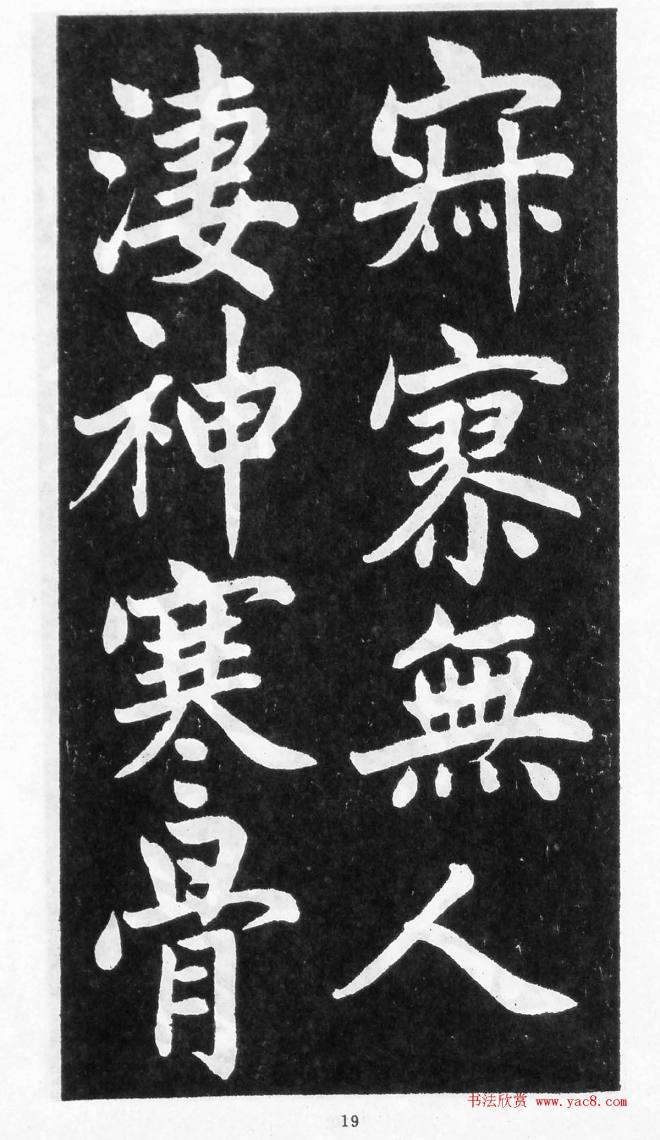 寂寥無人
淒神寒骨
19
书法欣赏 www.yac8.com